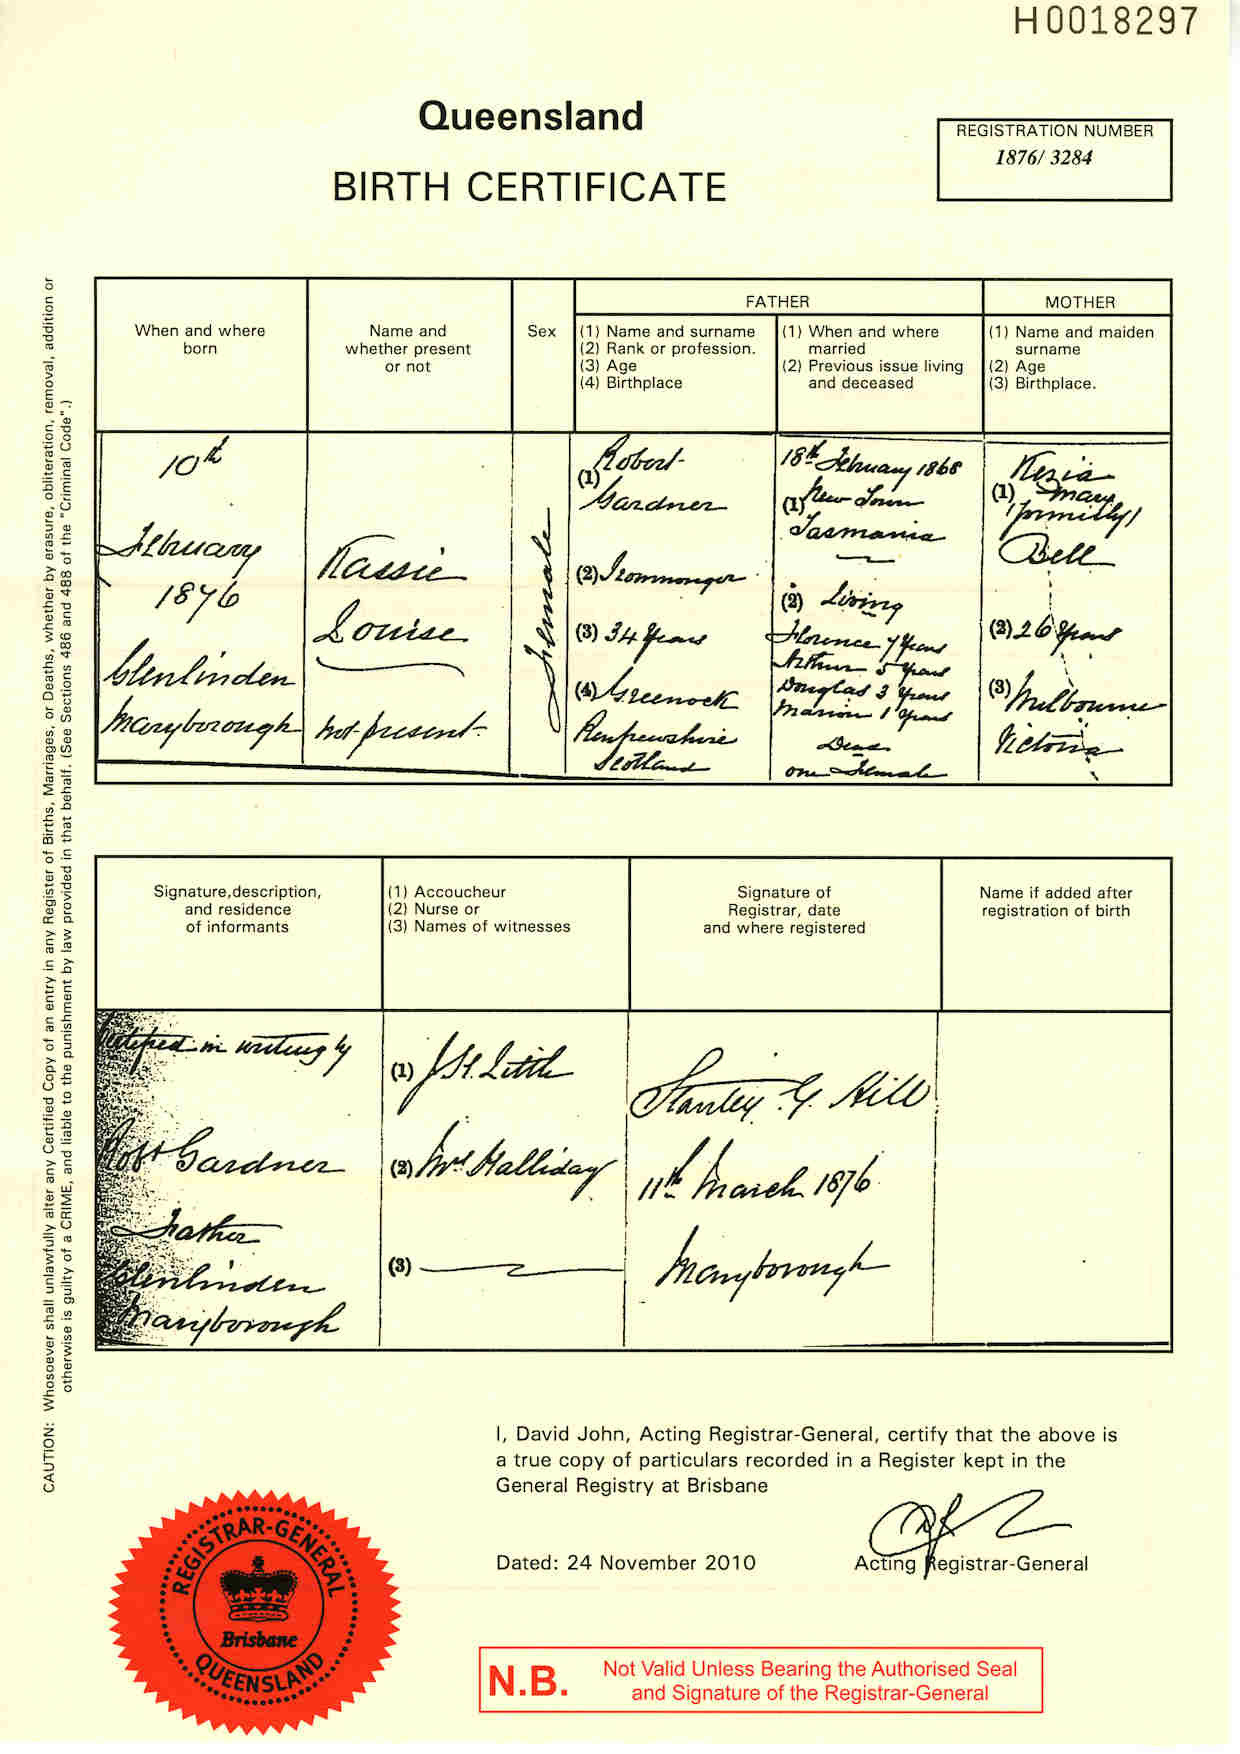 H0018297
Queensland
BIRTH CERTIFICATE
REGISTRATION NUMBER
1876/ 3284
FATHER
MOTHER
When and where
born
Name and
whether present
or not
Sex
(1) Name and surname
(2) Rank or profession.
(3) Age
(4) Birthplace
(1) When and where
married
(2) Previous issue living
and deceased
(1) Name and maiden
surname
(2) Age
(3) Birthplace.
10th
February
1876
Glenlinden
Maryborough
Kassie
Louise
not present
Female
Robert
(1)
Gardner
(2) Ironmonger
(3) 34 Years
(4) Greenock
Renfrewshire
Scotland
18th February 1868
(1) New Town
Tasmania
(2) Living
Florence 7 Years
Arthur 5 Years
Douglas 3 Years
Marion 1 Years
Dead
one Female
Kezia
(1) Mary
(formerly)
Bell
(2) 26 Years
(3) Melbourne
Victoria
Signature,description,
and residence
of informants
(1) Accoucheur
(2) Nurse or
(3) Names of witnesses
Signature of
Registrar, date
and where registered
Name if added after
registration of birth
Certified in writing by
Robt Gardner
Father
Glenlinden
Maryborough
(1) Little
(2) Mrs Halliday
(3)
Stanley G. Hill
11th March 1876
Maryborough
I, David John, Acting Registrar-General, certify that the above is
a true copy of particulars recorded in a Register kept in the
General Registry at Brisbane
Dated: 24 November 2010
Acting Registrar-General
REGISTRAR-GENERAL
Brisbane
QUEENSLAND
N.B.
Not Valid Unless Bearing the Authorised Seal
and Signature of the Registrar-General
CAUTION: Whosoever shall unlawfully alter any Certified Copy of an entry in any Register of Births, Marriages, or Deaths, whether by erasure, obliteration, removal, addition or
otherwise is guilty of a CRIME, and liable to the punishment by law provided in that behalf. (See Sections 486 and 488 of the "Criminal Code".)